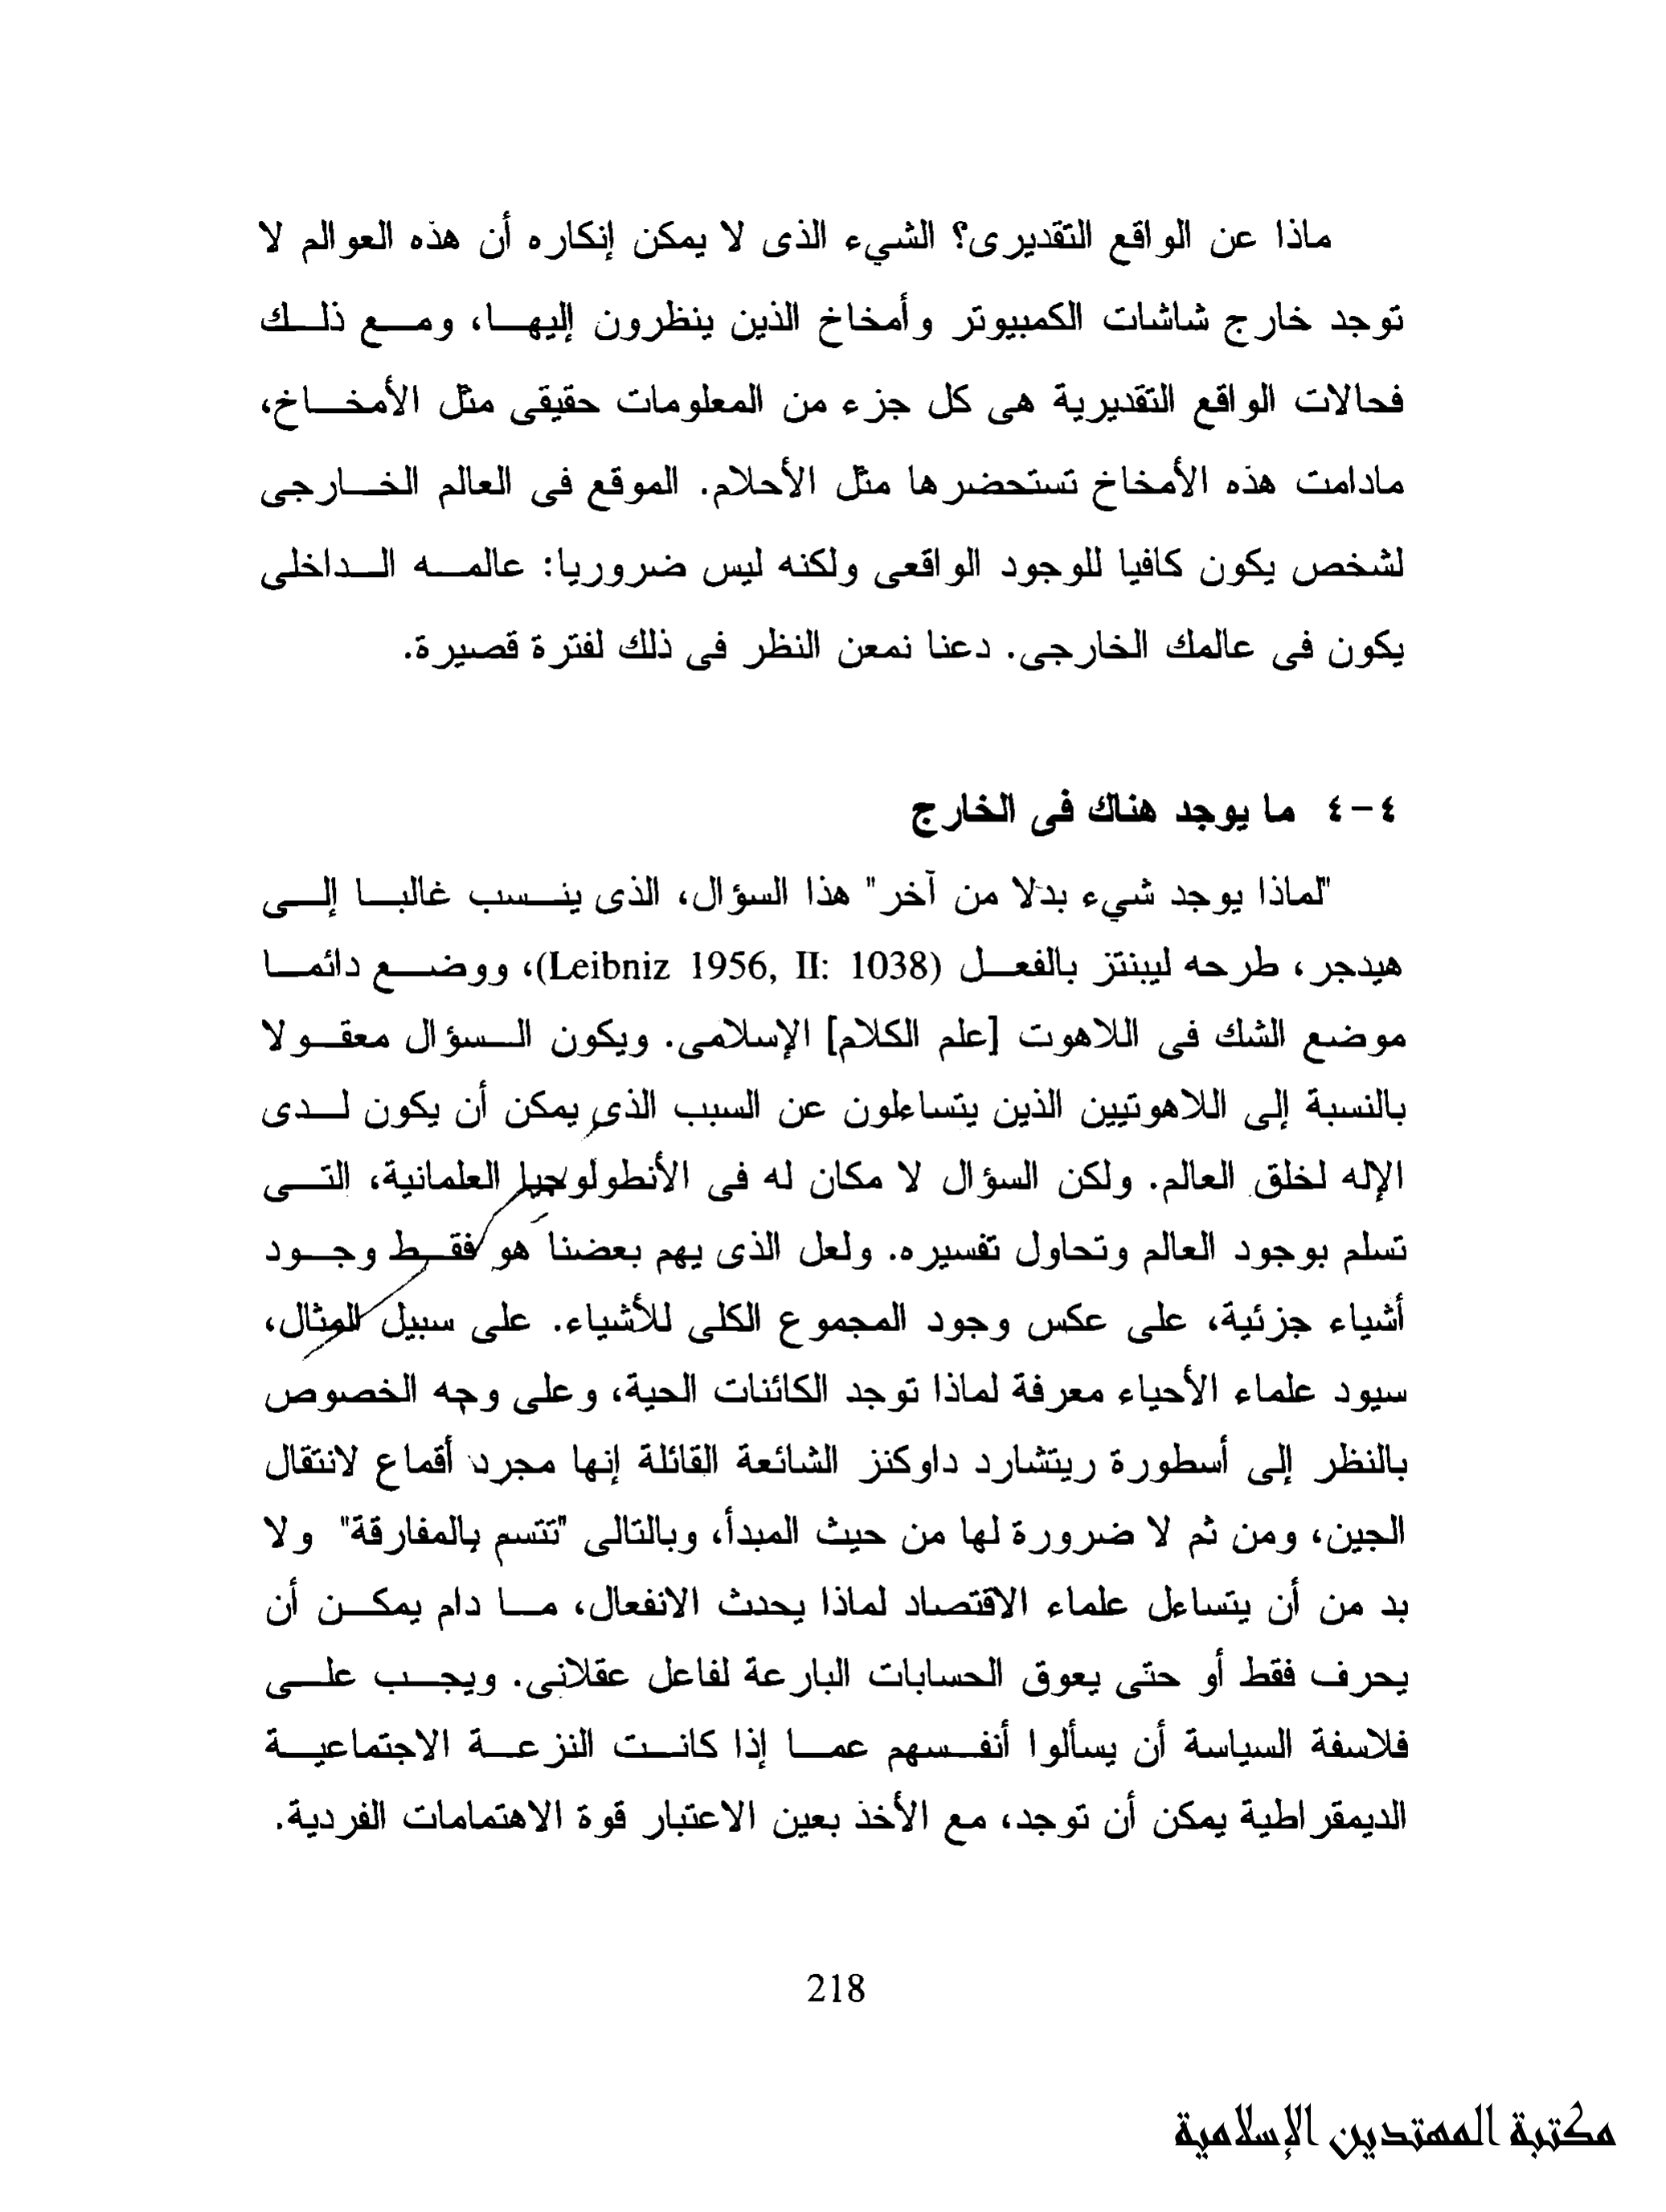 ماذا عن الواقع التقديرى؟ الشيء الذى لا يمكن إنكاره أن هذه العوالم لا
توجد خارج شاشات الكمبيوتر وأمخاخ الذين ينظرون إليها، ومع ذلك
فحالات الواقع التقديرية هى كل جزء من المعلومات حقيقى مثل الأمخاخ،
مادامت هذه الأمخاخ تستحضرها مثل الأحلام. الموقع فى العالم الخارجى
لشخص يكون كافيا للوجود الواقعى ولكنه ليس ضروريا: عالمه الداخلى
يكون فى عالمك الخارجى. دعنا نمعن النظر فى ذلك لفترة قصيرة.
٤-٤ ما يوجد هناك فى الخارج
"لماذا يوجد شيء بدلا من آخر" هذا السؤال، الذى ينسب غالبا إلى
هيدجر، طرحه ليبنتز بالفعل (Leibniz 1956, II: 1038)، ووضع دائما
موضع الشك فى اللاهوت [علم الكلام] الإسلامى. ويكون السؤال معقولا
بالنسبة إلى اللاهوتيين الذين يتساءلون عن السبب الذى يمكن أن يكون لدى
الإله لخلق العالم. ولكن السؤال لا مكان له فى الأنطولوجيا العلمانية، التى
تسلم بوجود العالم وتحاول تفسيره. ولعل الذى يهم بعضنا هو فقط وجود
أشياء جزئية، على عكس وجود المجموع الكلى للأشياء. على سبيل المثال،
سيود علماء الأحياء معرفة لماذا توجد الكائنات الحية، وعلى وجه الخصوص
بالنظر إلى أسطورة ريتشارد داوكنز الشائعة القائلة إنها مجرد أقماع لانتقال
الجين، ومن ثم لا ضرورة لها من حيث المبدأ، وبالتالى "تتسم بالمفارقة" ولا
بد من أن يتساءل علماء الاقتصاد لماذا يحدث الانفعال، ما دام يمكن أن
يحرف فقط أو حتى يعوق الحسابات البارعة لفاعل عقلانى. ويجب على
فلاسفة السياسة أن يسألوا أنفسهم عما إذا كانت النزعة الاجتماعية
الديمقراطية يمكن أن توجد، مع الأخذ بعين الاعتبار قوة الاهتمامات الفردية.
218
مكتبة المهتدين الإسلامية